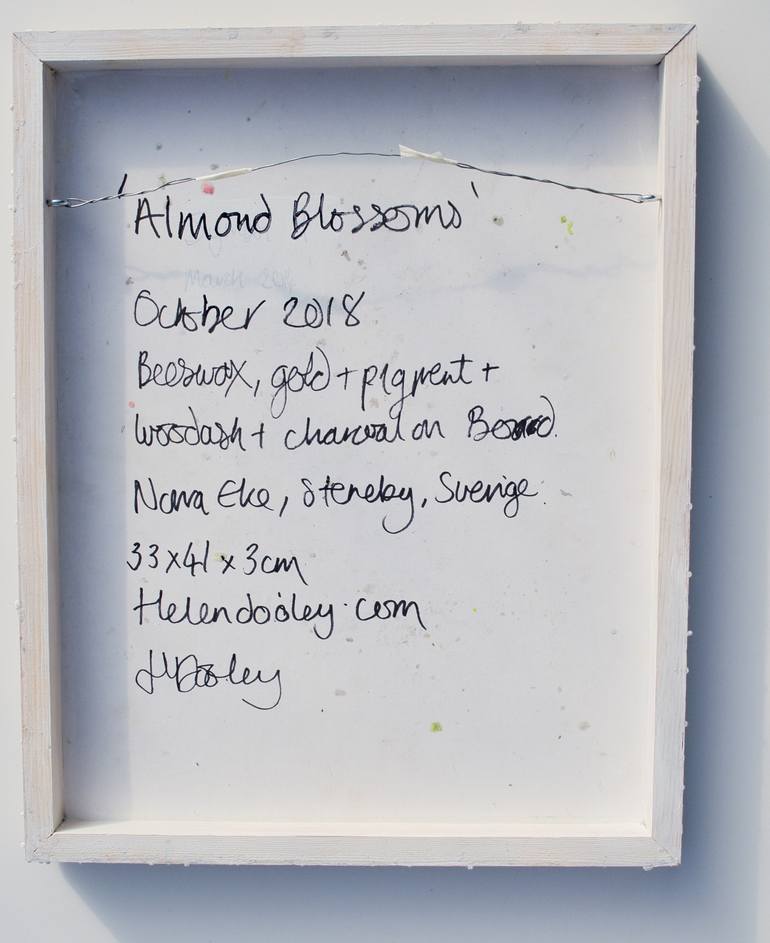 'Almond Blossoms'
March 201
October 2018
Beeswax, gold + pigment +
woodash + charcoal on Board.
Nora Eke, Steneby, Sverige.
33x41x3cm
Helendooley.com
HDooley